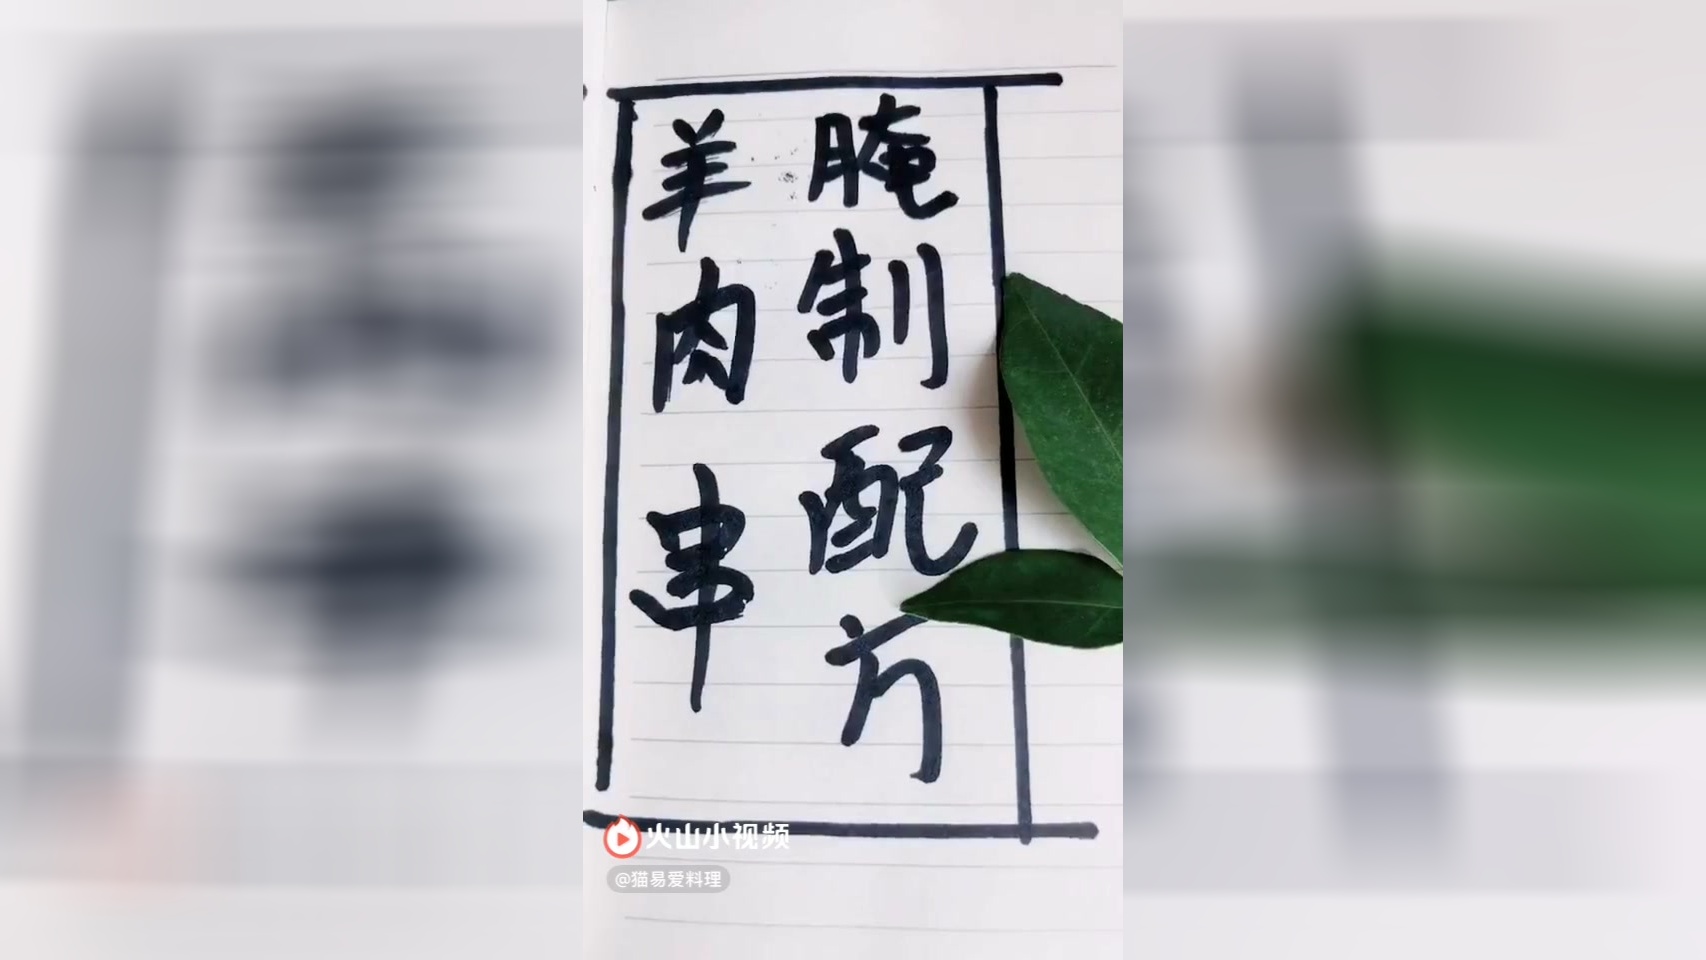 羊肉串
腌制配方
火山小视频
@猫易爱料理